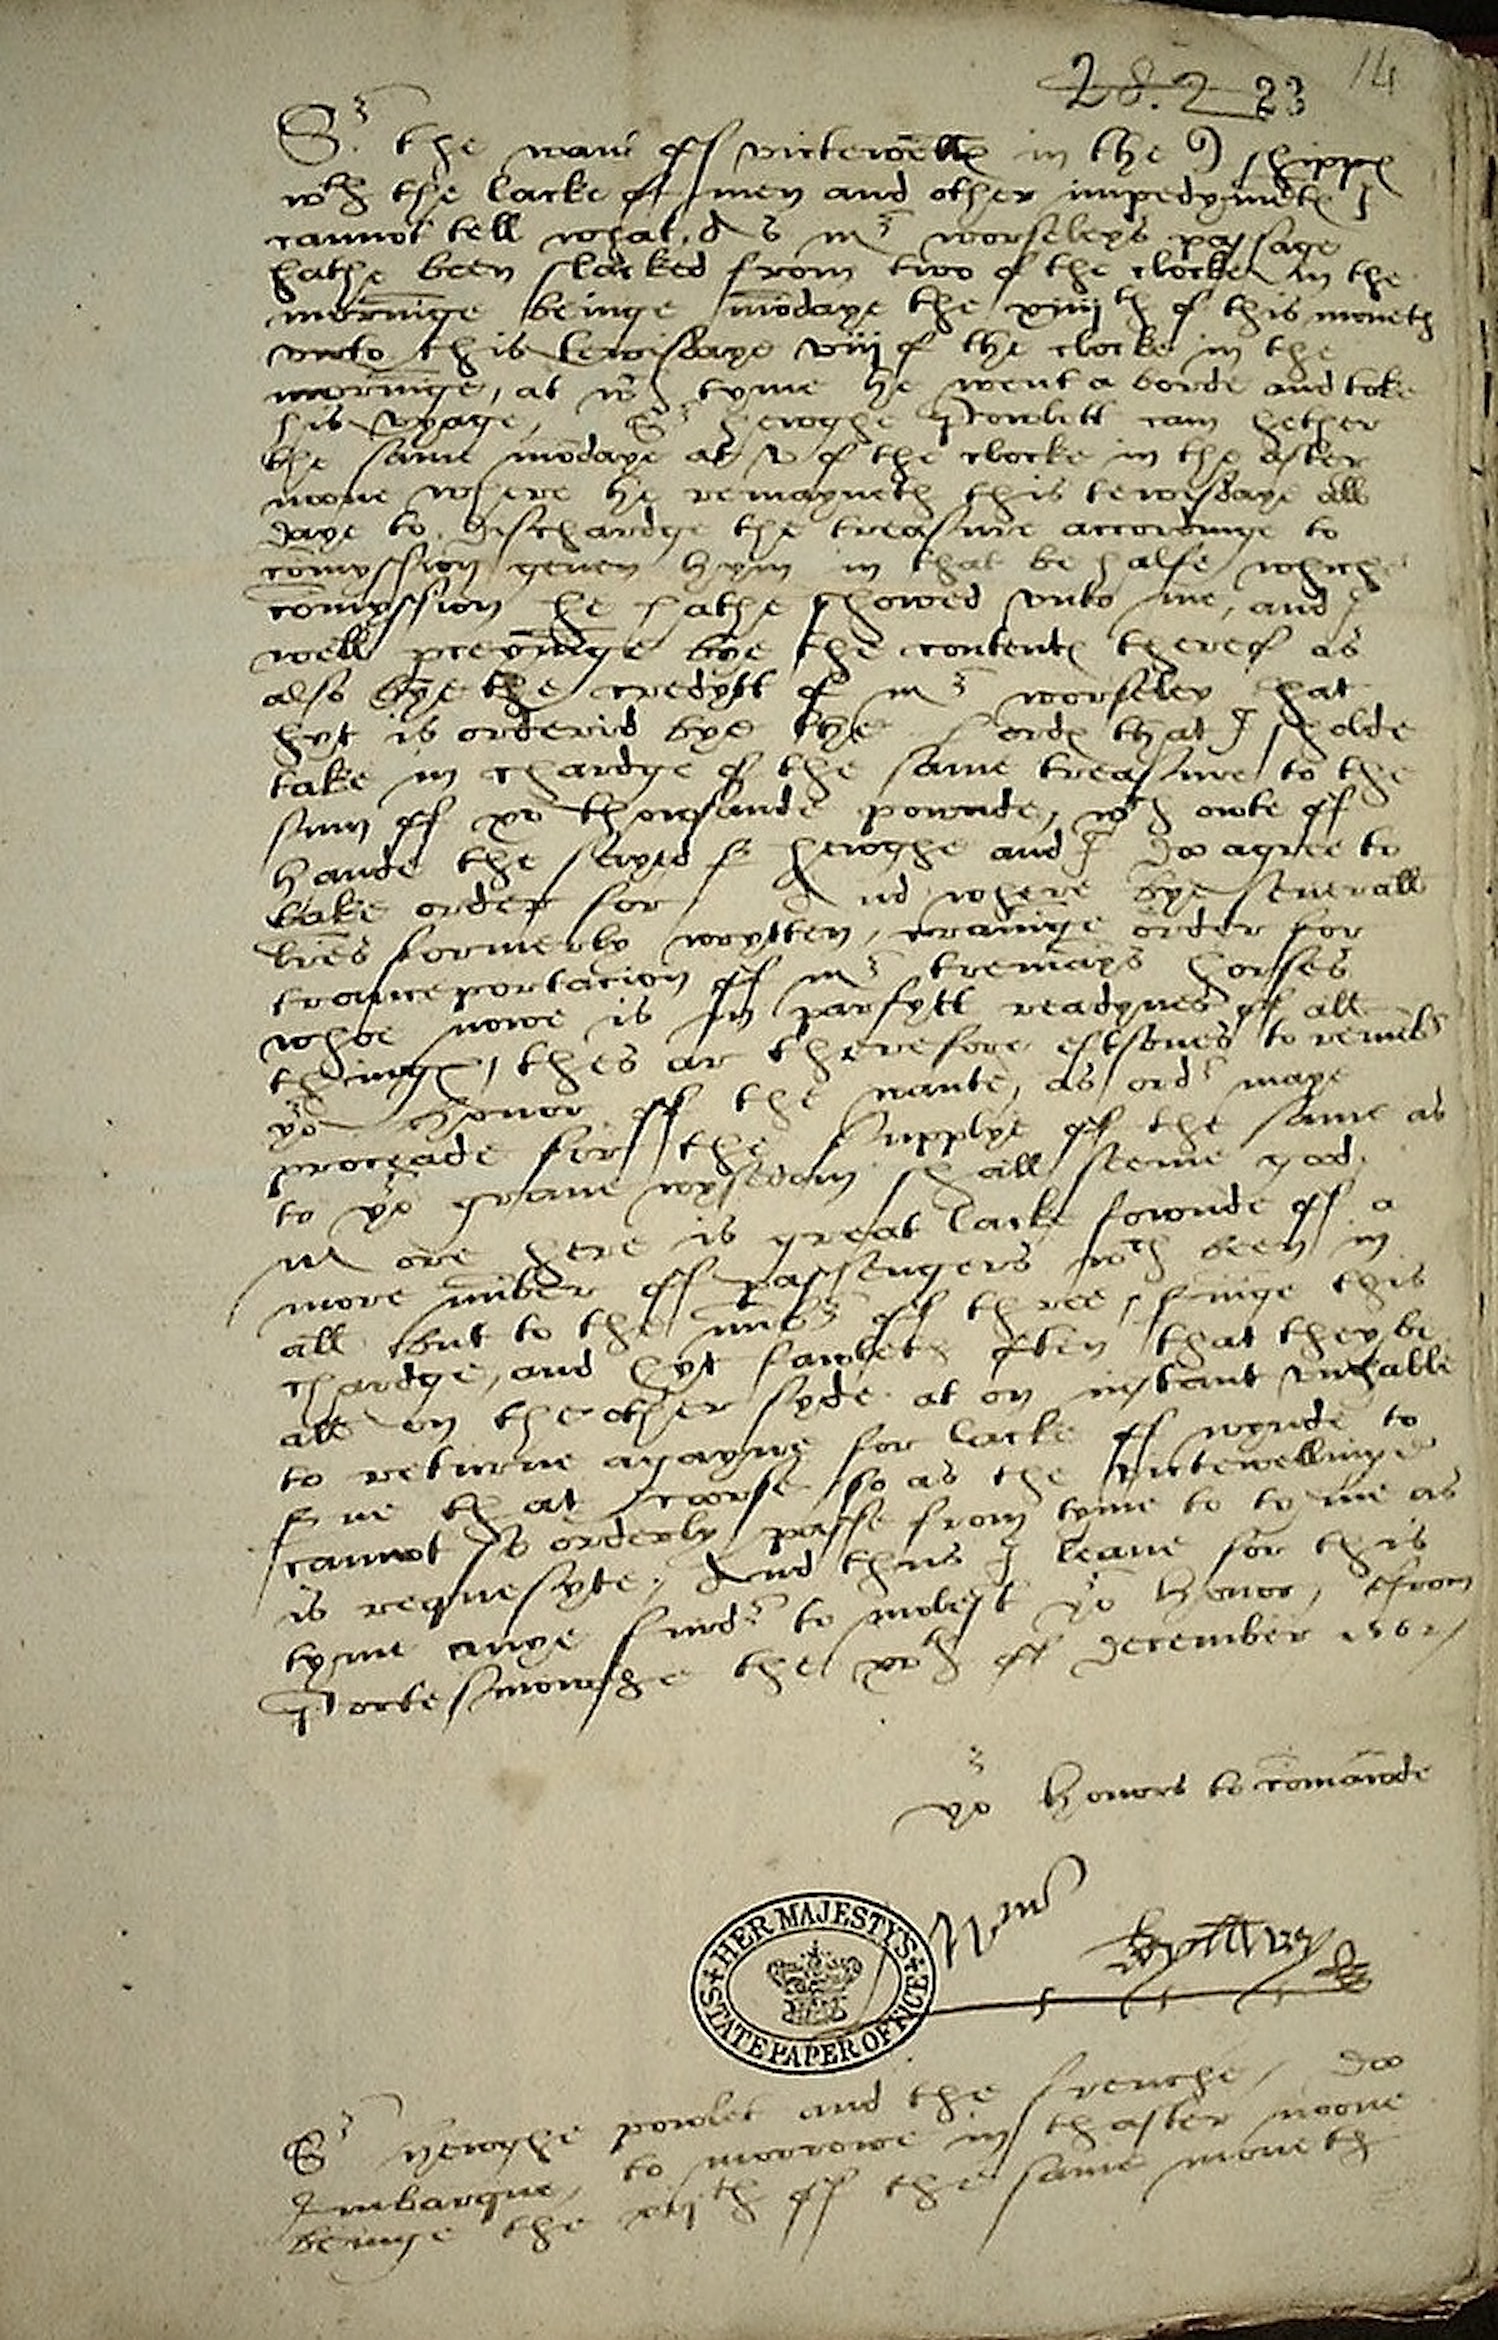 28. 2 23 14
Sr. the want off vittewells in the shippes
wth the lacke off men and other impedymets I
cannot tell what, & mr worseleys passage
hathe been slacked from two of the clocke in the
mornige beinge modaye the xiiijth of this moneth
unto this tewisdaye viij of the clocke in the
mornige, at wch tyme he went a borde and toke
his vyage, Sr hewghe Powlett cam hether
the same modaye at v of the clocke in the after
noone where he remayneth this tewesdaye all
daye to dischardge the treasure accordinge to
comyssion geven hym in that behalfe whiche
comyssion he hathe showed unto me, and I
well bye the contents therof as
also bye the credytt of mr worseley that
hyt is orderid bye the lords that I sholde
take in chardge of the same treasure to the
sum off xv thowsande pownde, wch owte off
hande the seyed sr hewghe and I doo agree to
take order for And where bye severall
lres formerly wrytten, cravinge order for
transeportacion off mr tremays horses
whoe nowe is in parfytt readynes off all
things, thes ar therefore eftsones to remebr
yor honor off the wante, as ordr maye
proceade for the supplye off the same as
to yor grave wysedom shall seeme good.
More here is great lacke fownde off a
more nuber off passengers wch been in
all but to the nubr off three, synge this
chardge, and hyt fauleth often that they be
all on the other syde at on instant unhable
to returne agayne for lacke off wynde to
serve that coorse so as the vittewellinge
cannot so orderly passe from tyme to tyme as
is requesyte. And thus I leave for this
tyme anye furdr to molest yor honor, ffrom
Portesmowthe the xvth off december 1562
yor honors to comande
Wm
HER MAJESTY'S STATE PAPER OFFICE
Sr hewghe powlet and the frenche, doo
Imbarque, to morrowe in thafter noone
beinge the xvjth off the same moneth